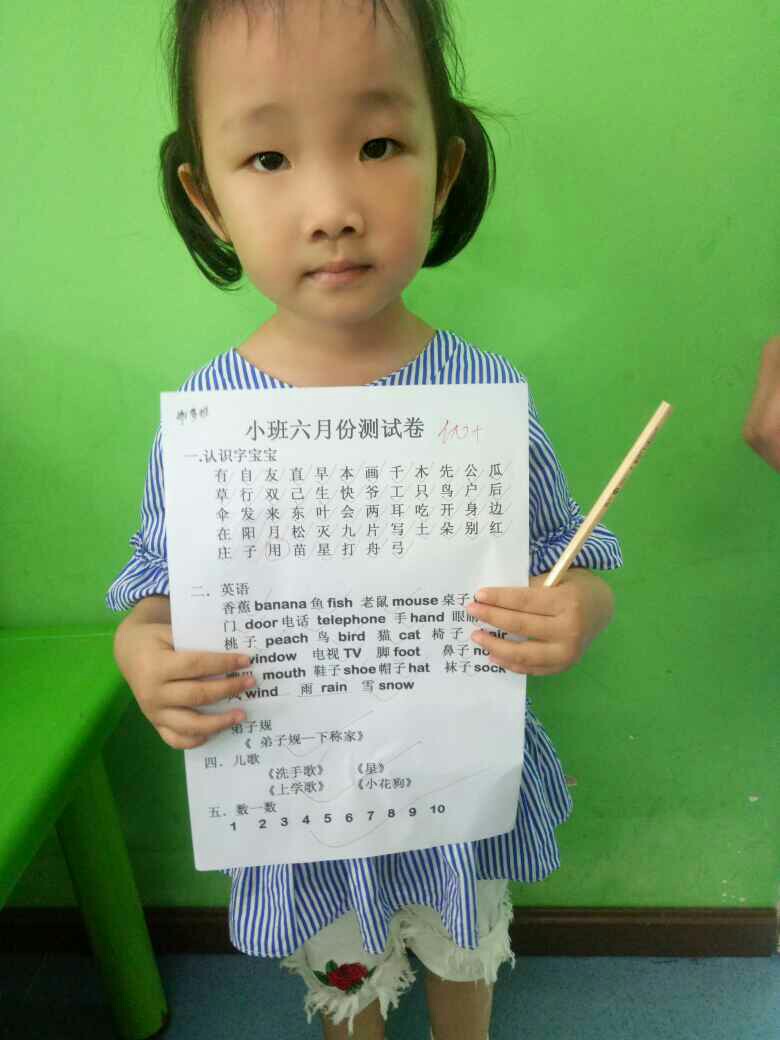 小班六月份测试卷
一.认识字宝宝
有 自 友 直 早 本 画 千 木 先 公 瓜
草 行 双 己 生 快 爷 工 只 鸟 户 后
伞 发 来 东 叶 会 两 耳 吃 开 身 边
在 阳 月 松 灭 九 片 写 土 朵 别 红
庄 子 用 苗 星 打 舟 弓
二．英语
香蕉 banana 鱼 fish 老鼠 mouse 桌子
门 door 电话 telephone 手 hand 眼睛
桃子 peach 鸟 bird 猫 cat 椅子
window 电视 TV 脚 foot 鼻子
mouth 鞋子 shoe 帽子 hat 袜子 sock
wind 雨 rain 雪 snow
弟子规
《弟子规—下称家》
四．儿歌
《洗手歌》 《星》
《上学歌》 《小花狗》
五．数一数
1 2 3 4 5 6 7 8 9 10